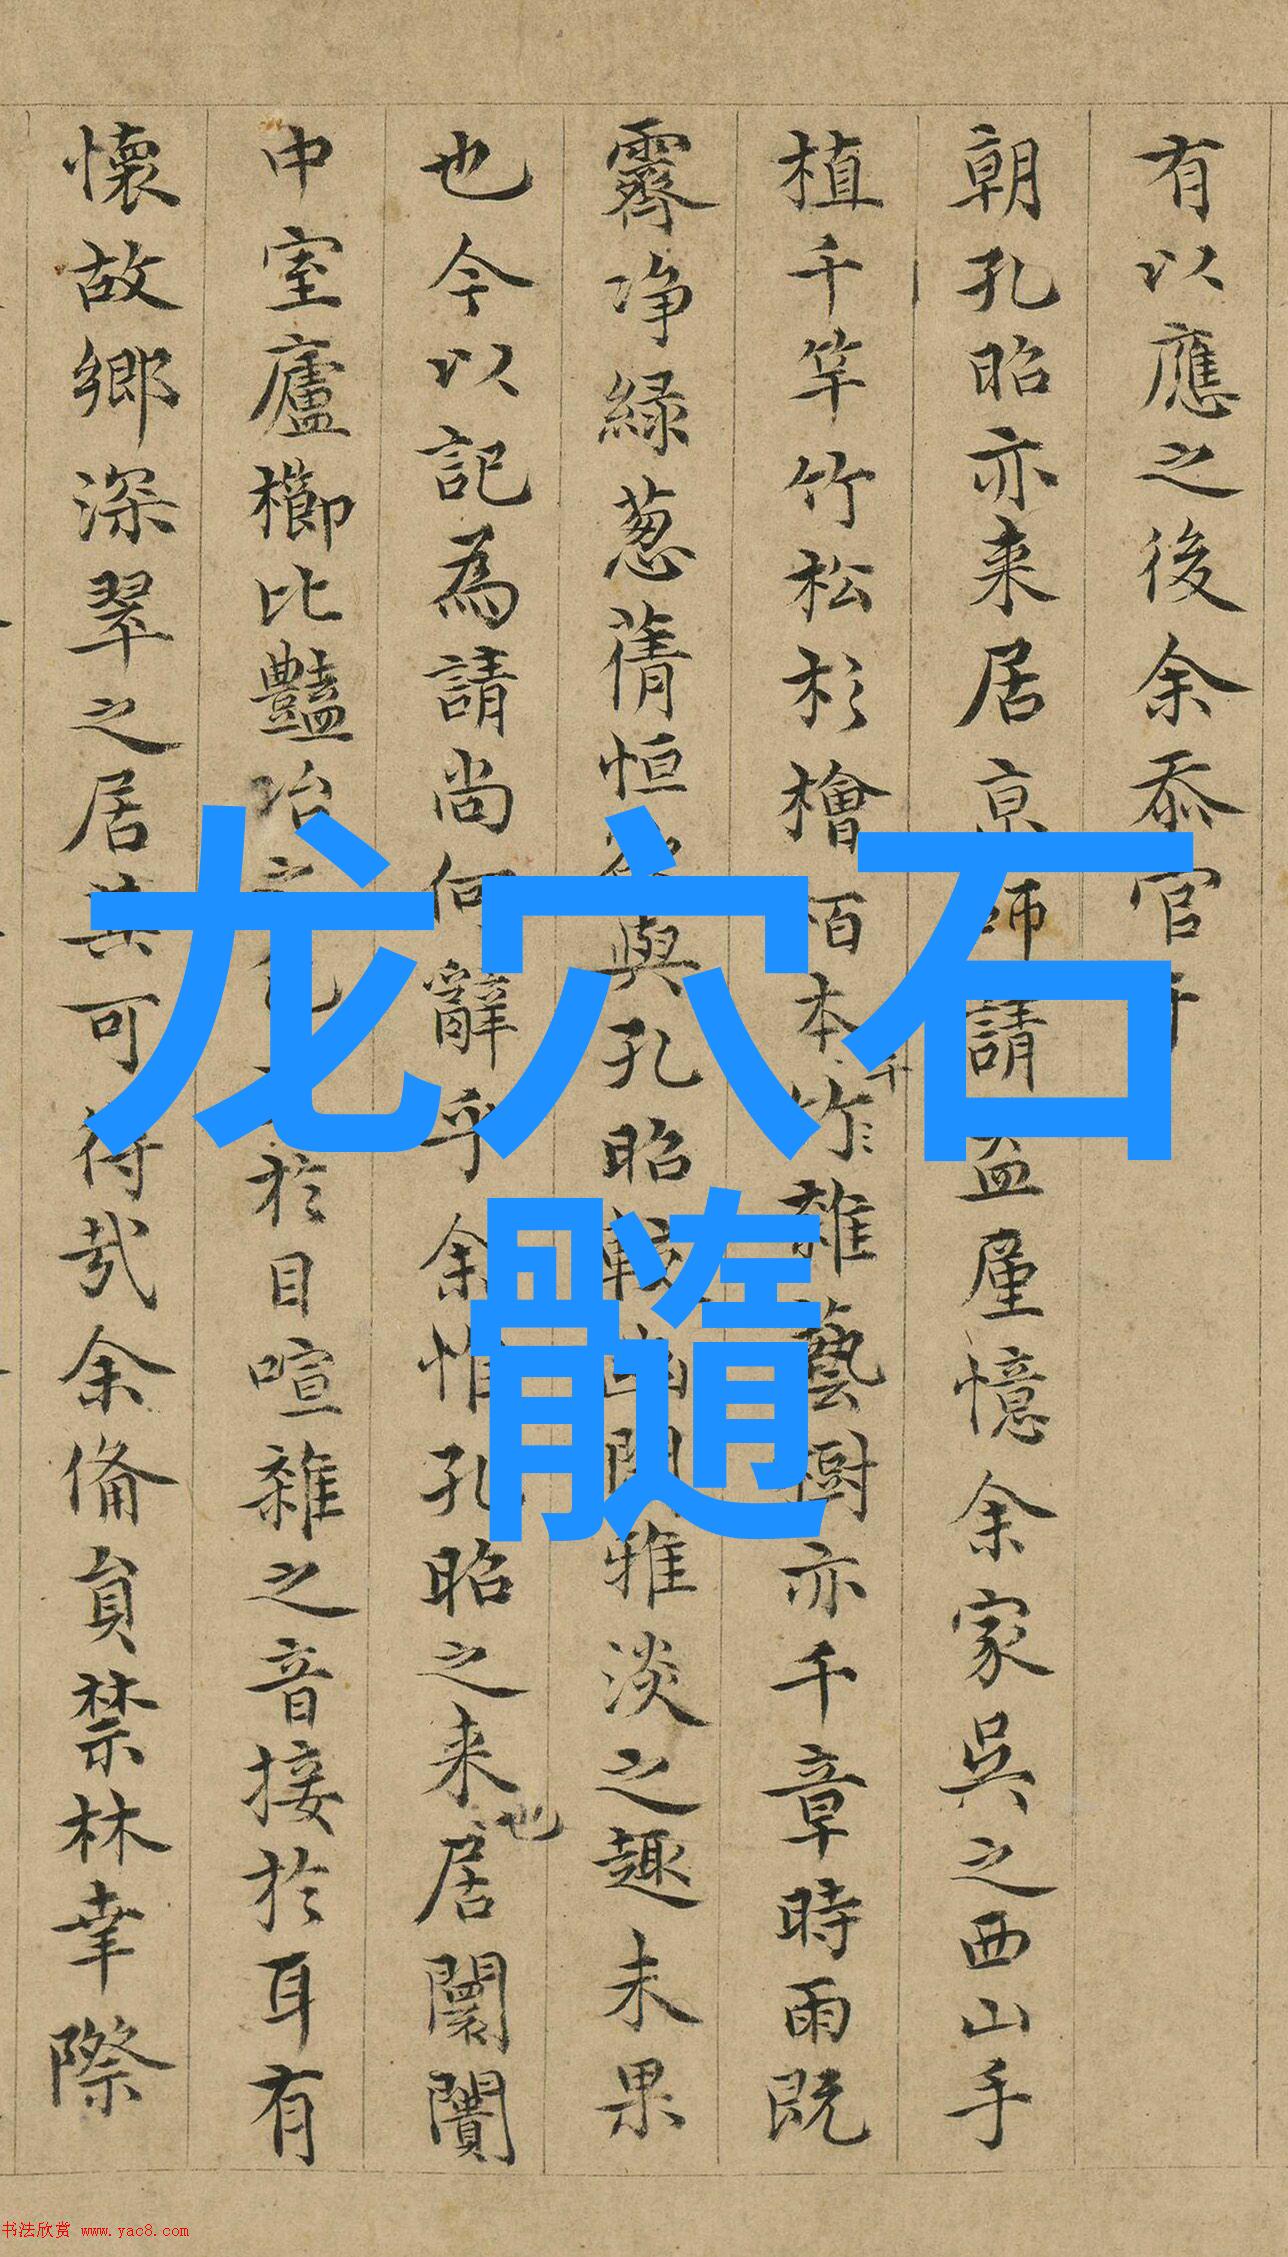 有以應之後余忝官
朝孔昭亦来居京師請益厪憶余家吳之西山手
植千竿竹松杉檜栢本竹千雜藝樹亦千章時雨既
霽净緑葱蒨恒與孔昭較幽閒雅淡之趣未果
也今以記為請尚何辭乎余惟孔昭之来居闤闠也
中室廬櫛比豔冶之色於目喧雜之音接於耳有
懷故鄉深翠之居其可得哉余備員禁林幸際
龙穴石
髓
书法欣赏 www.yac8.com